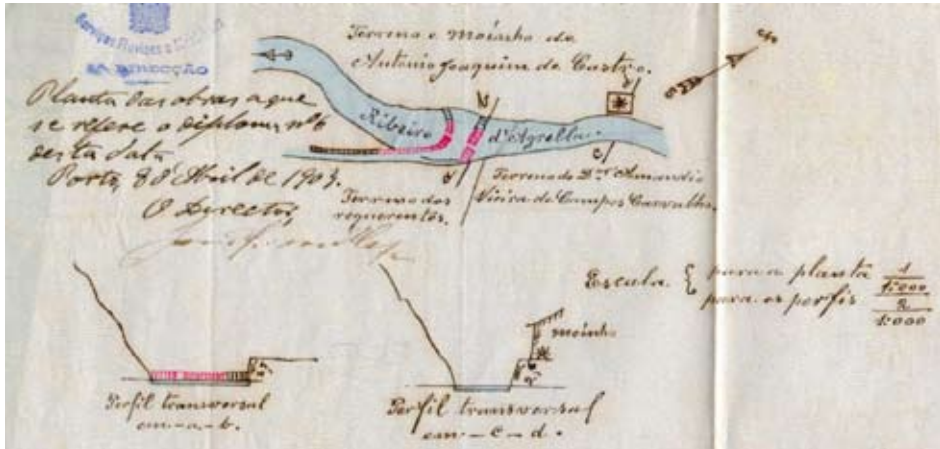 Serviços Fluviaes e
2ª DIRECÇÃO
Planta das obras a que
se refere o diploma nº 6
desta data
Porto, 8 d'Abril de 190
O Director,
Terreno e Moinho de
António Joaquim de Castro.
Ribeiro d'Agrella.
Terreno dos
requerentes.
Terreno do Dor Amandio
Vieira de Campos Carvalho.
a
c
Escala { para a planta 1/1:000
para os perfis 2/1:000
Perfil transversal
em - a - b.
moinho
Perfil transversal
em - c - d.